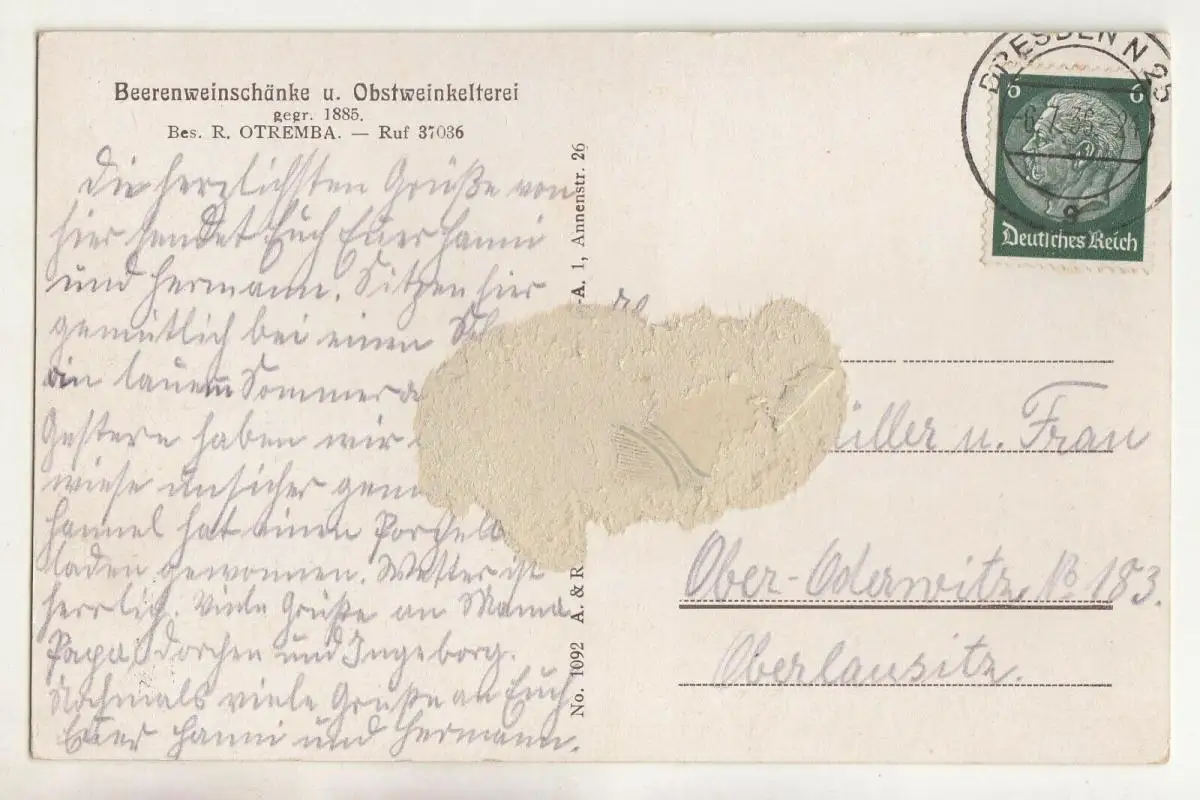 Beerenweinschänke u. Obstweinkelterei
gegr. 1885.
Bes. R. OTREMBA. — Ruf 37036
Die herzlichsten Grüße von
hier sendet Euch Euer Hanni
und Hermann. Sitzen hier
gemütlich bei einen
in lauem Sommer
Gestern haben wir
wiese unsicher gem
Hannel hat einen Porzell
laden gewonnen. Wetter ist
herrlich. Viele Grüße an Mama
Papa, Dorchen und Ingeborg.
Nochmals viele Grüße an Euch
Euer Hanni und Hermann.
No. 1092 A. & R. -A. 1, Annenstr. 26
DRESDEN N 25
6 6
Deutsches Reich
üller u. Frau
Ober-Oderwitz, No 183.
Oberlausitz.